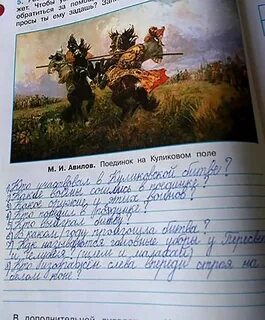 жет. Чтобы
обратиться за помощ
просы ты ему задашь? Запи
М. И. Авилов. Поединок на Куликовом поле
1) Кто участвовал в Куликовской битве?
2) Какие воины сошлись в поединке?
3) Какое оружие у этих воинов?
4) Кто победил в поединке?
5) Кто выиграл битву?
6) В каком году произошла битва?
7) Как называются головные уборы у Пересвета
и Челубея? (шлем и малахай)
8) Кто изображён слева впереди строя на
белом коне?
В дополнительной